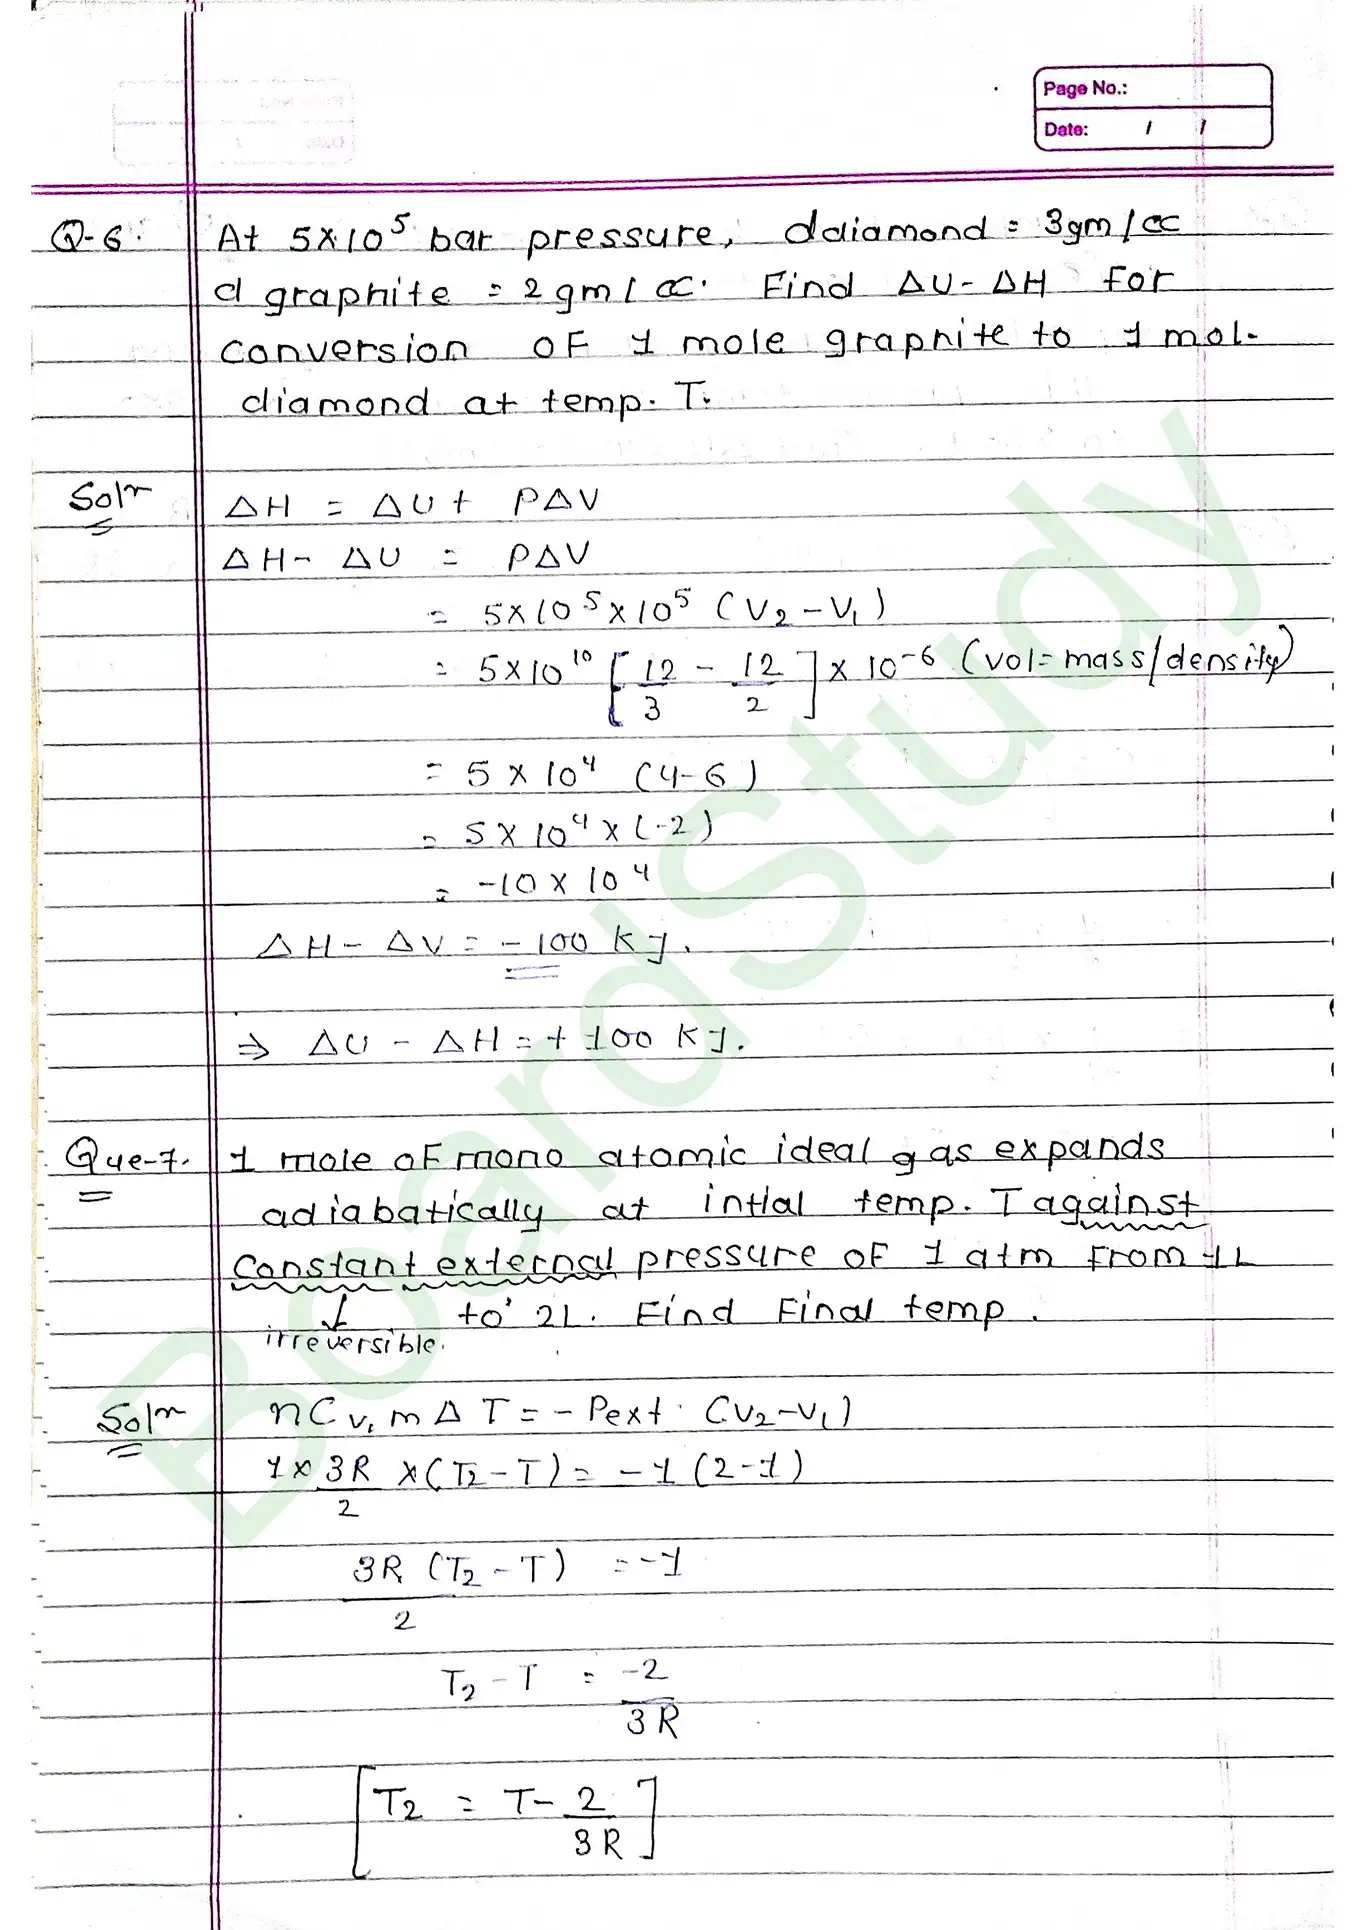 Page No.:
Date: / /
Q-6. At 5×10⁵ bar pressure, ddiamond = 3gm/cc
d graphite = 2gm/cc. Find ΔU-ΔH for
conversion of 1 mole graphite to 1 mol.
diamond at temp. T.
Solⁿ ΔH = ΔU + PΔV
ΔH - ΔU = PΔV
= 5×10⁵×10⁵ (V₂-V₁)
= 5×10¹⁰ [12/3 - 12/2] × 10⁻⁶ (vol= mass/density)
= 5×10⁴ (4-6)
= 5×10⁴×(-2)
= -10×10⁴
ΔH - ΔV = -100 KJ.
⇒ ΔU - ΔH = +100 KJ.
Que-7. 1 mole of mono atomic ideal gas expands
adiabatically at intial temp. T against
constant external pressure of 1 atm from 1L
↓ to 2L. Find Final temp.
irreversible.
Solⁿ nCv,m ΔT = - Pext. (V₂-V₁)
1 × 3R/2 × (T₂-T) = -1 (2-1)
3R (T₂-T)/2 = -1
T₂ - T = -2/3R
[T₂ = T - 2/3R]
BoardStudy